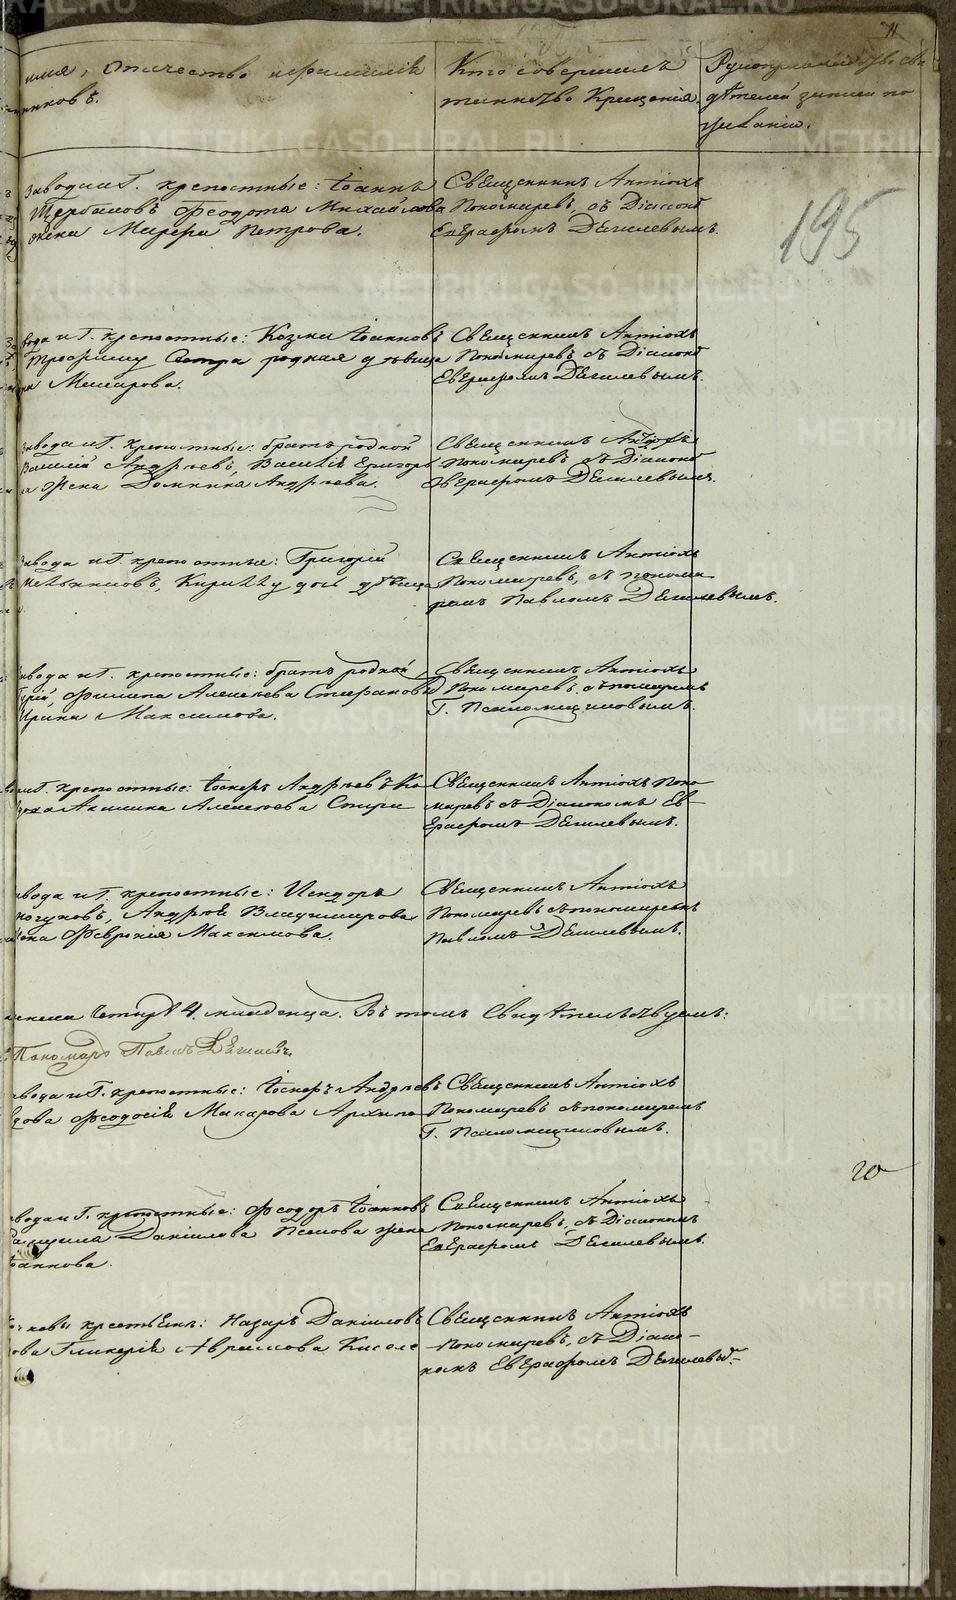 11
имя, Отчество и фамилія
никовъ.
Кто совершилъ
таинство Крещенія.
Рукоприкладство сви
дѣтелей записи по
желанію.
195
Завода и Г. крепостные: Іоаннъ
Щербаковъ Феодота Михайлова
жена Марфа Петрова.
Священникъ Антіохъ
Пономаревъ, съ Діакон
Евграфомъ Дягилевымъ.
вода и Г. крепостные: Козма Іоанновъ
Трофиму Сестра родная дѣвица
Макарова.
Священникъ Антіохъ
Пономаревъ съ Діакон
Евграфомъ Дягилевымъ.
завода и Г. крепостные: братъ родной
Василій Андреевъ, Василія Григорь
а жена Домникія Андреева.
Священникъ Антіохъ
Пономаревъ съ Діакон
Евграфомъ Дягилевымъ.
завода и Г. крепостные: Григорій
Мельниковъ, Кириллу дочь дѣвица
Священникъ Антіохъ
Пономаревъ, съ понома
ремъ Павломъ Дягилевымъ.
завода и Г. крепостные: братъ родной
Филипа Алексѣева Стефанов
Ирина Максимова.
Священникъ Антіохъ
Пономаревъ съ пономаремъ
Г. Псаломщиковымъ.
и Г. крепостные: Іосифъ Андреевъ Ко
Акилина Алексѣева Спири
Священникъ Антіохъ Поно
маревъ съ Діакономъ Ев
графомъ Дягилевымъ.
завода и Г. крепостные: Исидоръ
Андрея Владимирова
жена Февронія Максимова.
Священникъ Антіохъ
Пономаревъ съ пономаремъ
Павломъ Дягилевымъ.
четыре 4. младенца. Въ томъ Свидѣтельствуемъ:
Пономарь Павелъ Дягилевъ
завода и Г. крепостные: Іосифъ Андреевъ
дова Феодосія Макарова Архипо
Священникъ Антіохъ
Пономаревъ съ пономаремъ
Г. Псаломщиковымъ.
завода и Г. крепостные: Феодоръ Іоанновъ
Даніилова жена
Іоаннова.
Священникъ Антіохъ
Пономаревъ, съ Діакономъ
Евграфомъ Дягилевымъ.
20
крестьяне: Назаръ Даніиловъ
ова Гликерія Аврамова Киселе
Священникъ Антіохъ
Пономаревъ, съ Діако-
номъ Евграфомъ Дягилевым
METRIKI.GASO-URAL.RU